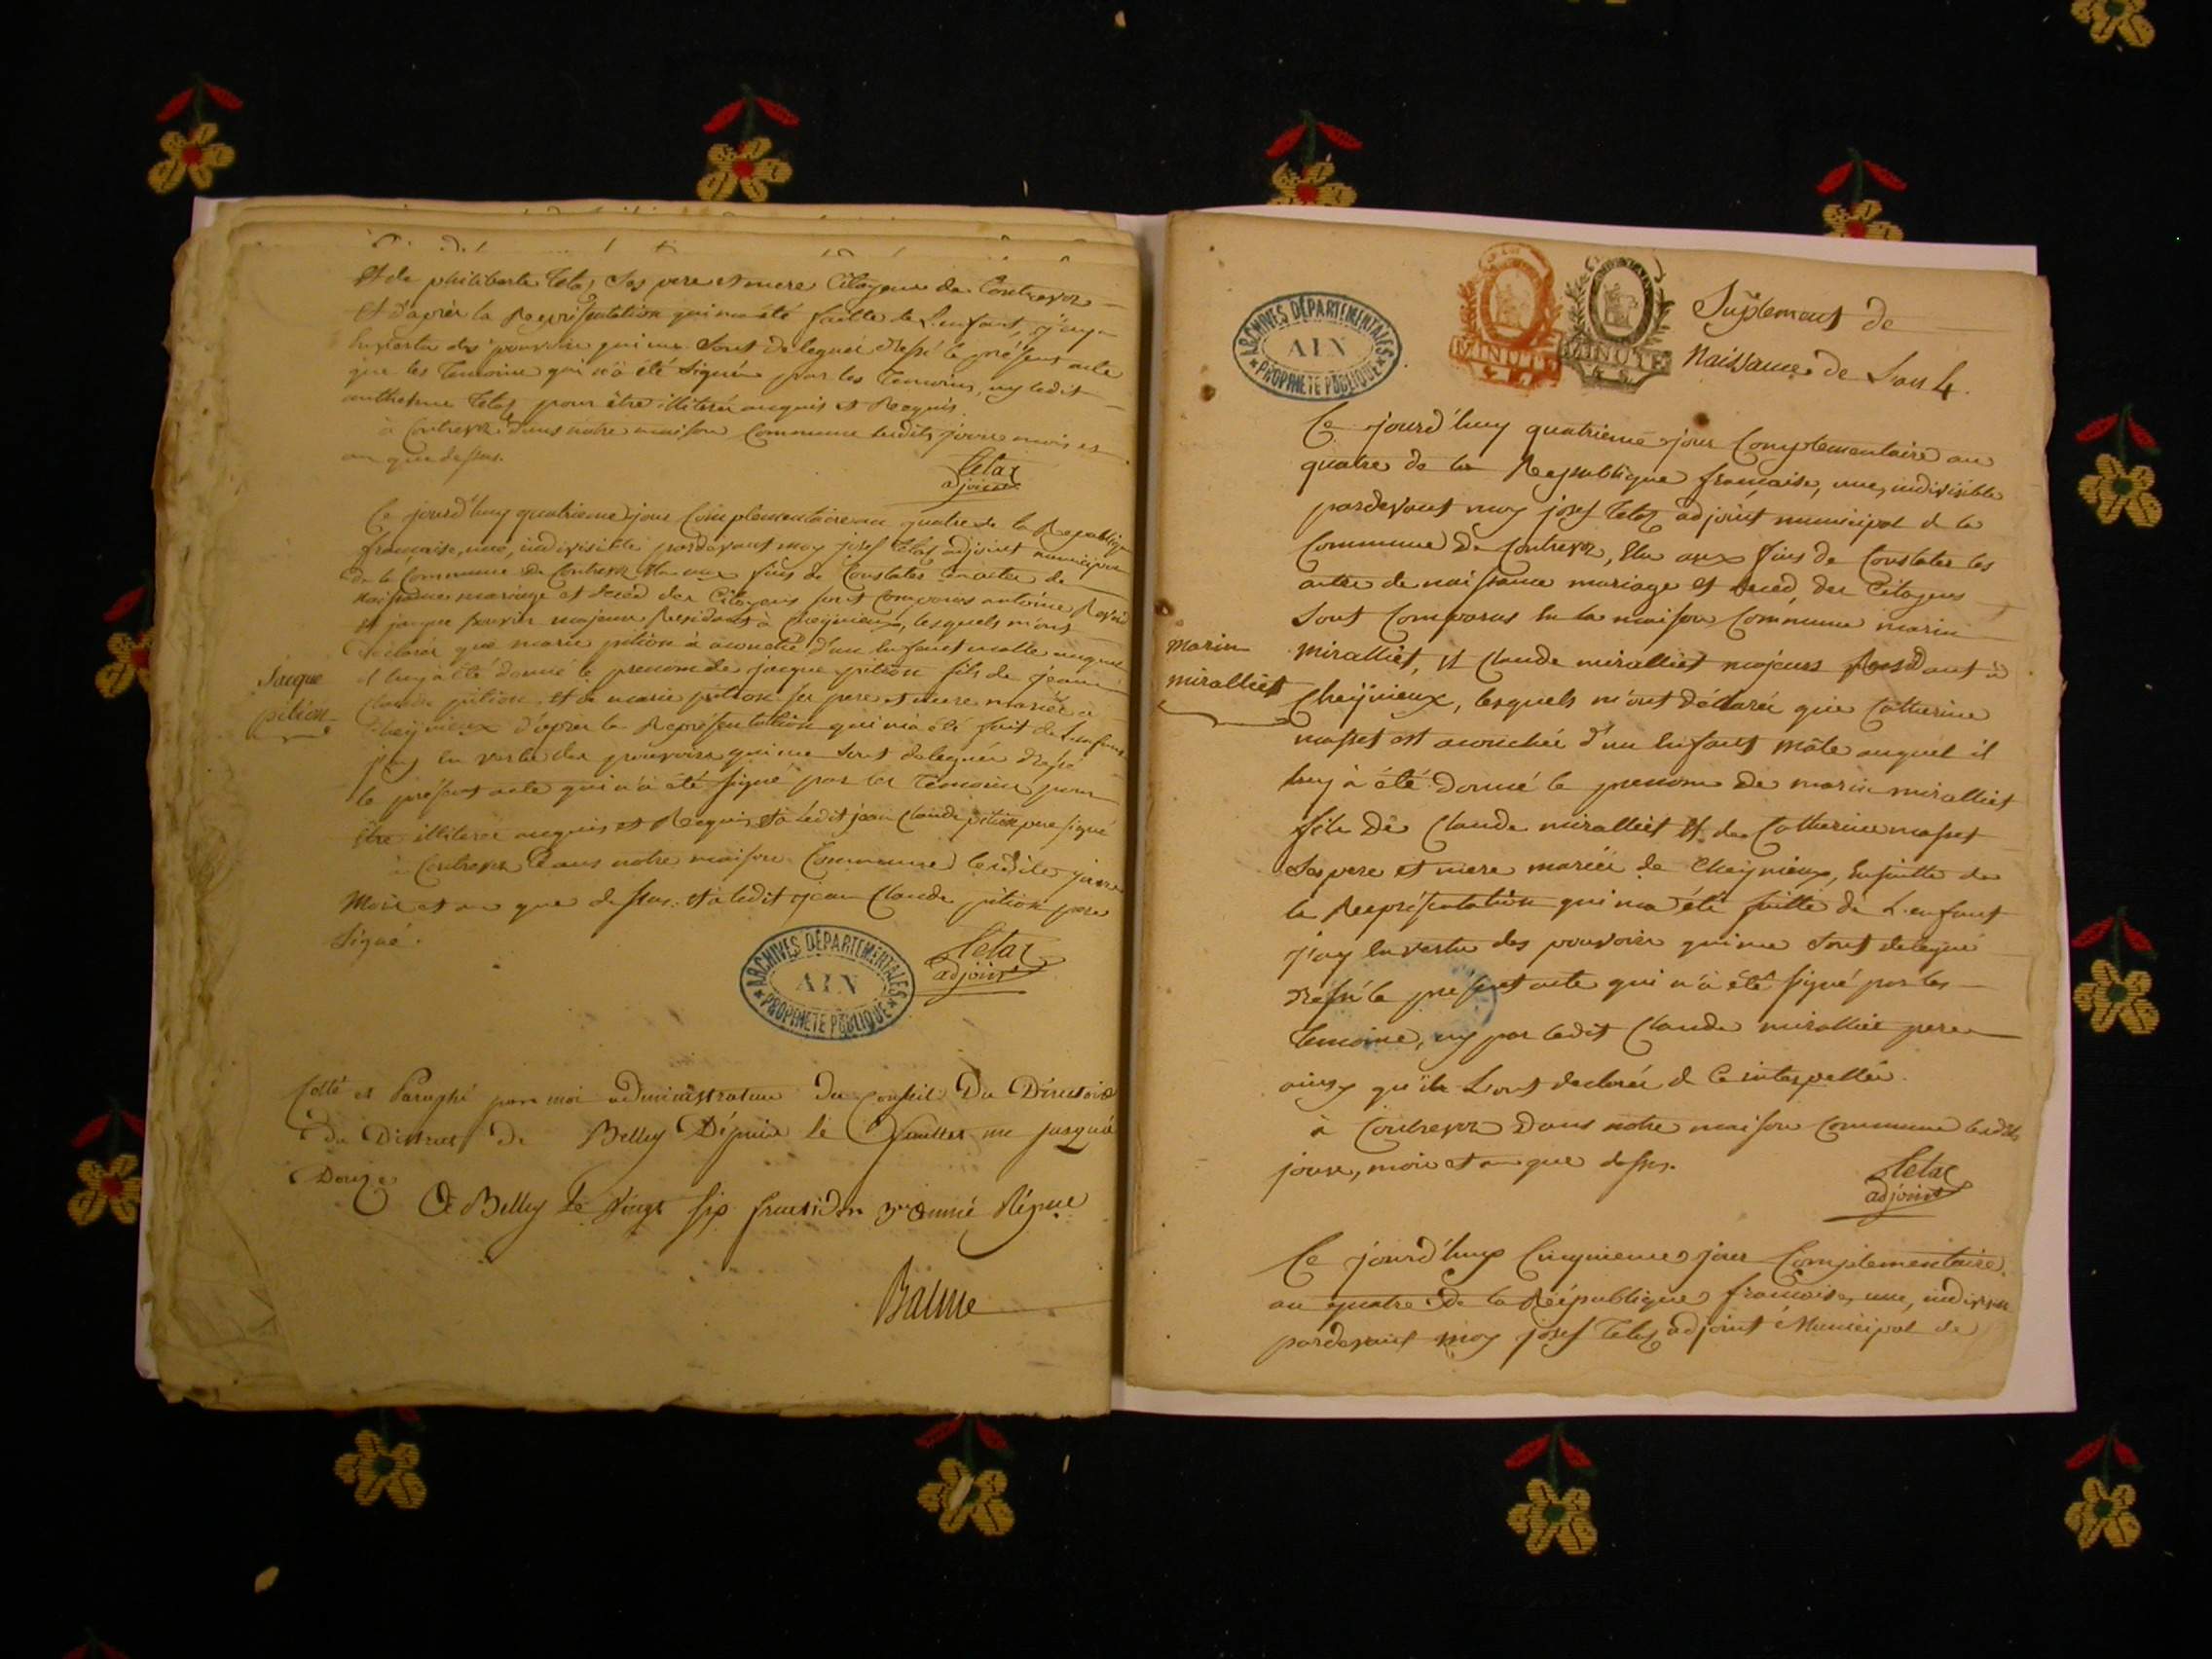 et de philiberte Tetaz ses pere et mere Citoyens de Contrevoz
et d'après la Representation qui m'a été faitte de L'enfant, j'ay en
vertu des pouvoirs qui me sont delegués dressé le présent acte
que les Temoins qui n'a été signé par les Temoins, ny ledit
anthelme Tetaz pour être illiterés enquis et Requis
à Contrevoz dans notre maison Commune lesdits jours mois et
an que dessus.
Tetaz
adjoint
Ce jourd'huy quatrieme jour Complementaire an quatre de la Republique
française, une, indivisible pardevant moy josef Tetaz adjoint municipal
de la Commune de Contrevoz elu aux fins de Constater les actes de
naissance mariage et deced des Citoyens sont Comparus antoine
et jacque majeurs Residants à Cheÿnieux, lesquels m'ont
declarés que marie pition à acouché d'un Enfant malle auquel
il luy a été donné le prenom de jacque pition fils de jean
Jacque
pition
Claude pition et de marie pition ses pere et mere mariés à
Cheÿnieux d'après la Représentation qui m'a été fait de L'enfant
j'ay en vertu des pouvoirs qui me sont delegués dressé
le présent acte qui n'a été signé par les Temoins pour
être illiterés enquis et Requis et à ledit jean Claude pition pere signé
à Contrevoz dans notre maison Commune lesdits jours
Mois et an que dessus. et à ledit jean Claude pition pere
signé.
Tetaz
adjoint
ARCHIVES DÉPARTEMENTALES
AIN
PROPRIÉTÉ PUBLIQUE
Cotté et Paraphé par moi administrateur du Conseil Du Directoire
du District de Belley Dépuis le feuillet un jusqu'à
Douze
A Belley le Vingt six fructidor 3me année Répue
Balme
ARCHIVES DÉPARTEMENTALES
AIN
PROPRIÉTÉ PUBLIQUE
MINUTE
MINUTE
Suplement de
Naissances de L'an 4.
Ce jourd'huy quatrieme jour Complementaire an
quatre de la Republique française, une, indivisible
pardevant moy josef Tetaz adjoint municipal de la
Commune de Contrevoz, Elu aux fins de Constater les
actes de naissance mariage et deced des Citoyens
sont Comparus en la maison Commune marin
marin
miralliet
miralliet, et Claude miralliet majeurs Residant à
Cheÿnieux, lesquels m'ont déclarés que Catherine
masset est acouchée d'un Enfant mâle auquel il
luy à été donné le prenom de marin miralliet
fils de Claude miralliet et de Catherine masset
ses pere et mere mariés de Cheynieux, Ensuitte de
la Representation qui m'a été faitte de L'enfant
j'ay En vertu des pouvoirs qui me sont delegué
dressé le present acte qui n'à été signé par les
Temoins, ny par ledit Claude miralliet pere
ainsy qu'ils L'ont declarés de ce interpellés.
à Contrevoz dans notre maison Commune lesdits
jours, mois et an que dessus.
Tetaz
adjoint
Ce jourd'huy Cinquieme jour Complementaire
an quatre de la République française, une, indivisi
pardevant moy josef Tetaz adjoint Municipal de